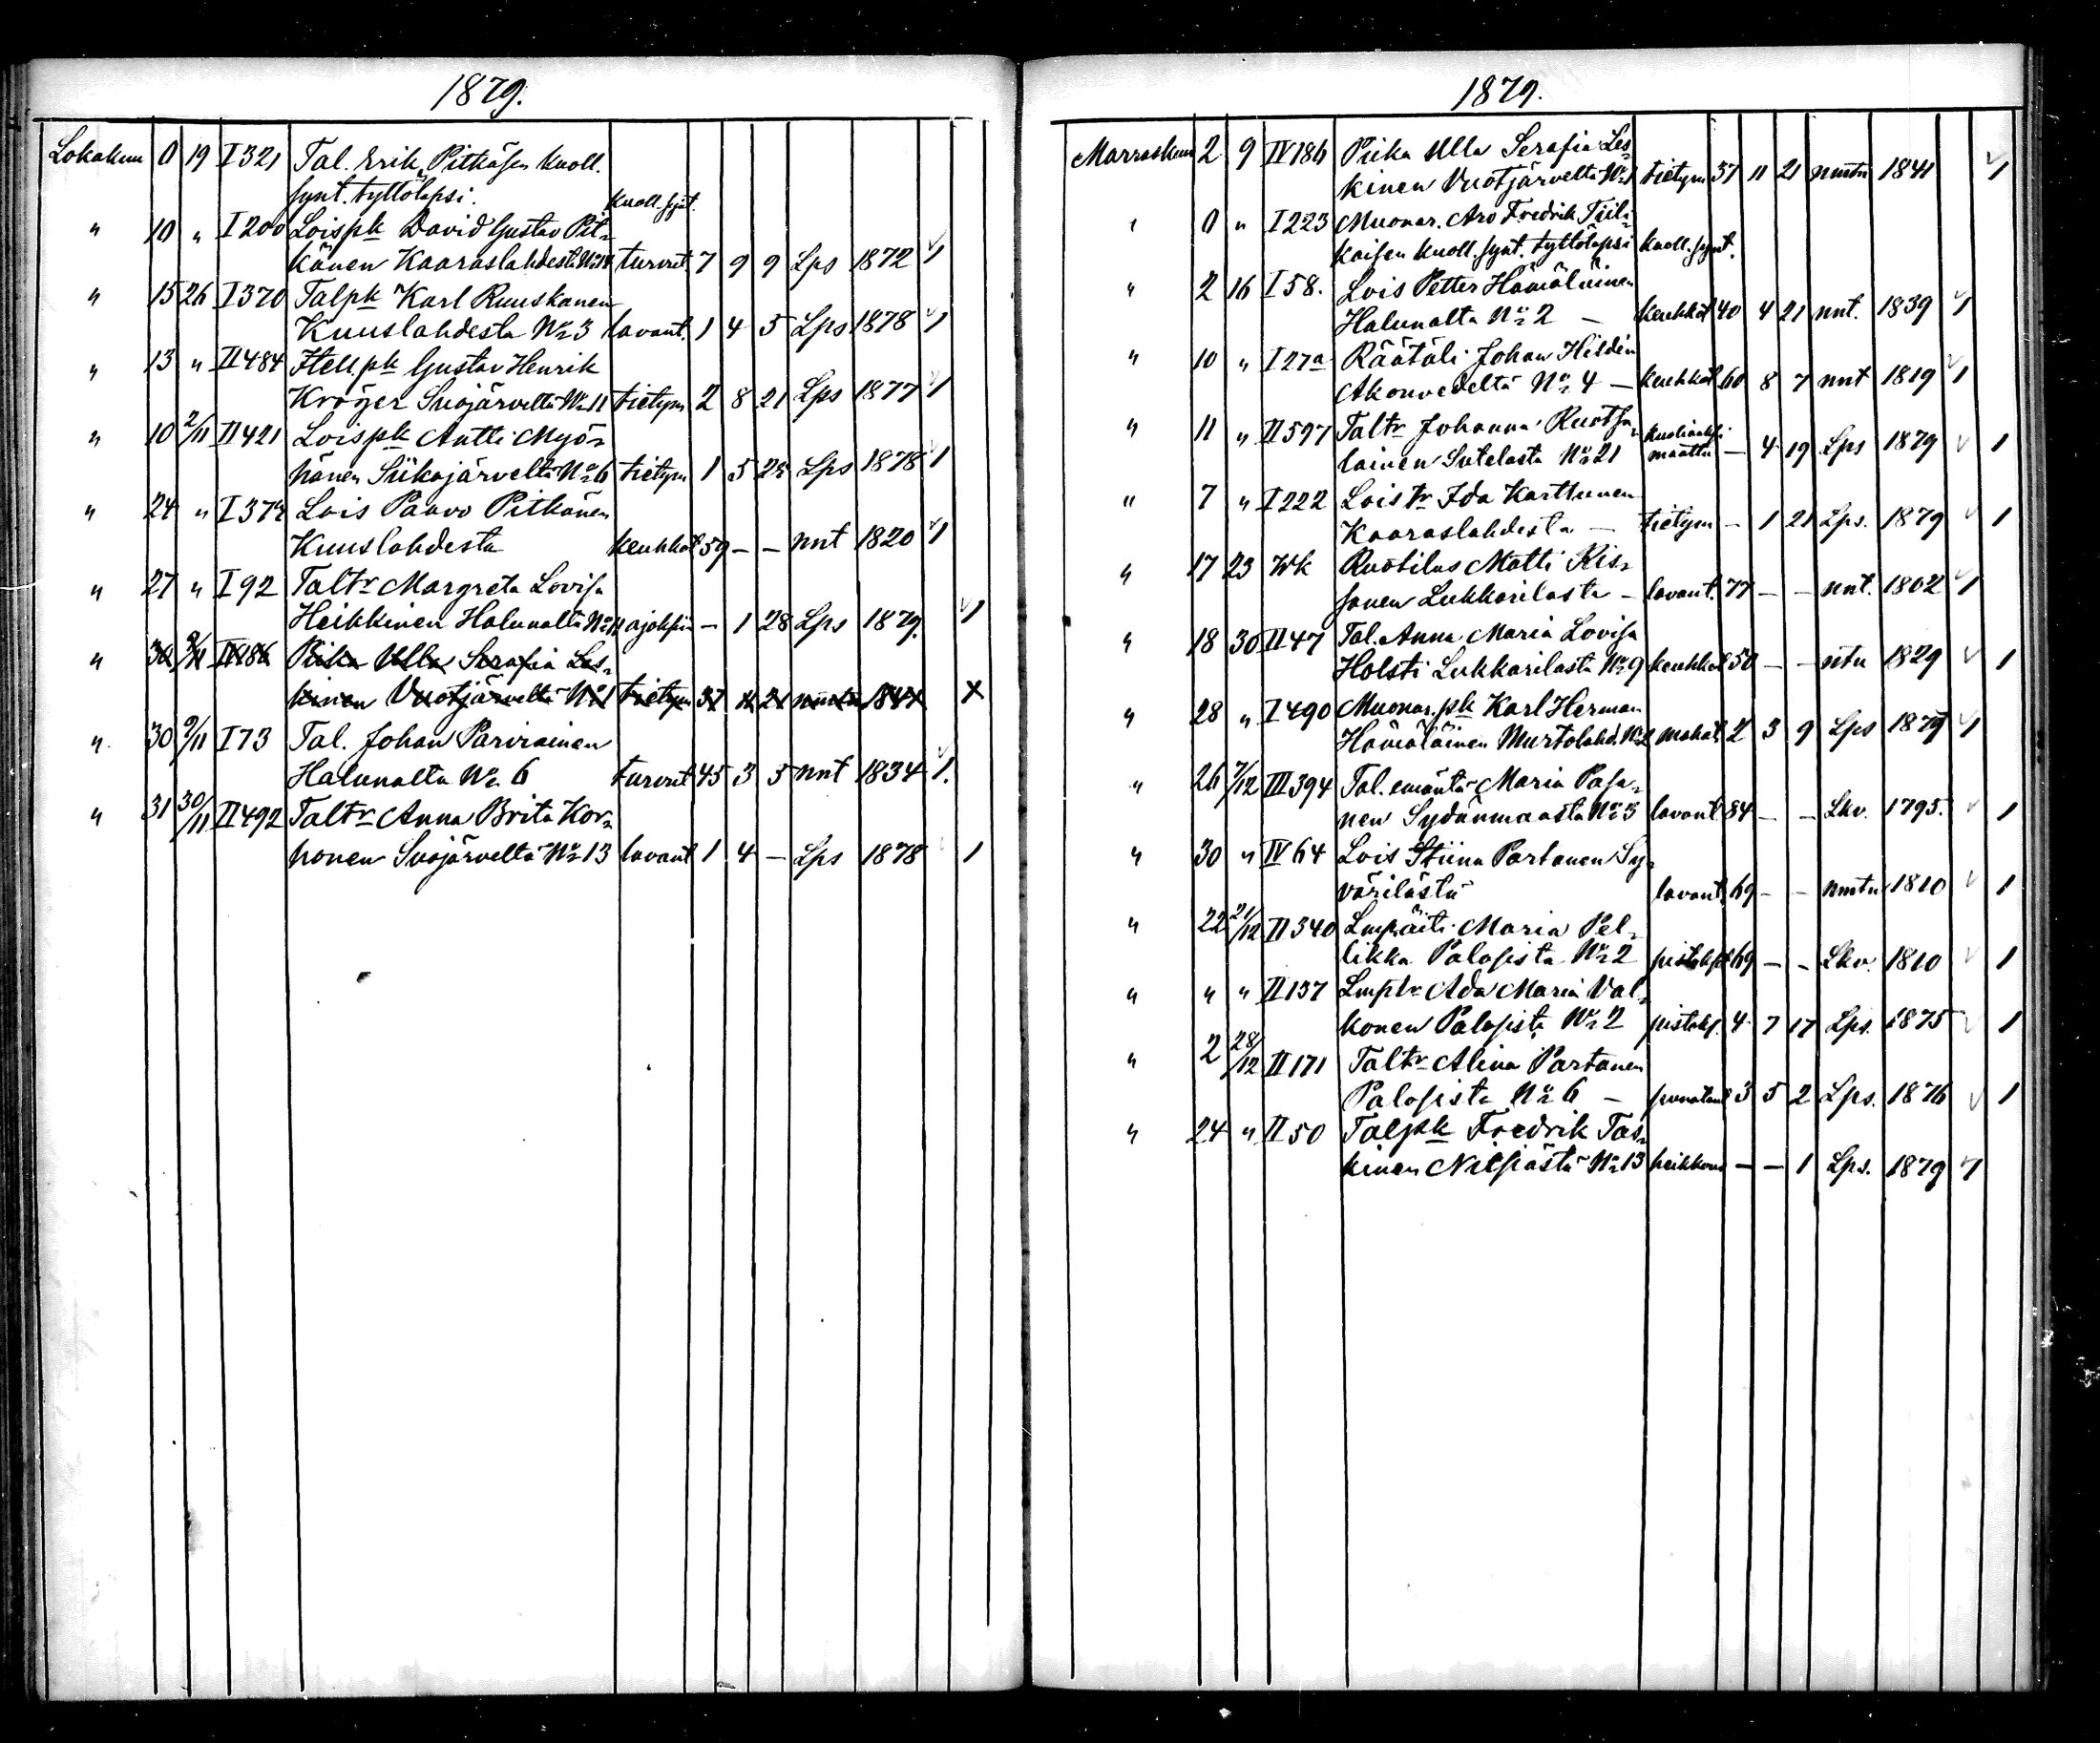 1879.
Lokakuu 0 19 I 321 Tal. Erik Pitkäsen kuoll.
synt. tyttölapsi. kuoll. synt.
" 10 " I 200 Loispk David Gustav Pit-
känen Kaaraslahdesta turvot. 7 9 9 Lps 1872 1
" 15 26 I 370 Talpk Karl Ruuskanen
Kuuslahdesta No 3 lavant. 1 4 5 Lps 1878 1
" 13 " II 484 Itell.pk Gustav Henrik
Kröger Suojärveltä No 11 tietym 2 8 21 Lps 1877 1
" 10 2/11 II 421 Loispk Antti Myö-
hänen Siikajärveltä No 6 tietym 1 5 28 Lps 1878 1
" 24 " I 372 Lois Paavo Pitkänen
Kuuslahdesta keuhkot 59 - - nnt 1820 1
" 27 " I 92 Taltr Margreta Lovisa
Heikkinen Halunalta ajoksia - 1 28 Lps 1879. 1
" 30 9/11 IV 186 Piika Ulla Serafia Les-
kinen Vuotjärveltä No 1 tietym 37 11 21 nmtn 1841 x
" 30 9/11 I 73 Tal. Johan Parviainen
Halunalta No 6 turvot 45 3 5 nnt 1834 1.
" 31 30/11 II 492 Taltr Anna Brita Kor-
honen Suojärveltä No 13 lavant 1 4 - Lps 1878 1
1879.
Marraskuu 2 9 IV 186 Piika Ulla Serafia Les-
kinen Vuotjärveltä No 1 tietym 37 11 21 nmtn 1841 1
" 0 " I 223 Muonar. Aro Fredrik Tiili-
kaisen kuoll. synt. tyttölapsi kuoll. synt.
" 2 16 I 58. Lois Petter Hämäläinen
Halunalta No 2 - keuhkot 40 4 21 nnt. 1839 1
" 10 " I 27a Räätäli Johan Hildén
Akonvedeltä No 4 - keuhkot 60 8 7 nnt 1819 1
" 11 " II 597 Taltr Johanna Ruotsa-
lainen Sutelasta No 21 kuoliaaksi
maattu - 4 19 Lps 1879 1
" 7 " I 222 Loistr Ida Karttunen
Kaaraslahdesta - tietym - 1 21 Lps. 1879 1
" 17 23 Wk Ruotilus Matti Kis-
sanen Lukkarilasta - lavant. 77 - - nnt. 1802 1
" 18 30 II 47 Tal. Anna Maria Lovisa
Holsti Lukkarilasta No 9 keuhkot 50 - - ntn 1829 1
" 28 " I 490 Muonar. pk Karl Herman
Hämäläinen Murtolahd. No 2 mahat. 2 3 9 Lps 1877 1
" 26 7/12 III 394 Tal. emäntä Maria Pasa-
nen Sydänmaasta No 3 lavant 84 - - Lkv. 1795. 1
" 30 " IV 64 Lois Stiina Partanen Sy-
värilästä lavant. 69 - - nmtn 1810 1
" 22 21/12 II 340 Lmpäiti Maria Pel-
likka Palosista No 2 pistoksit 69 - - Lkv. 1810 1
" " " II 157 Lmptr Ada Maria Val-
konen Palosista No 2 pistoks. 4 7 17 Lps. 1875 1
" 2 28/12 II 171 Taltr Alina Partanen
Palosista No 6 - punataut 3 5 2 Lps. 1876 1
" 24 " II 50 Talpk Fredrik Tas-
kinen Nilsiästä No 13 heikkous - - 1 Lps. 1879 1